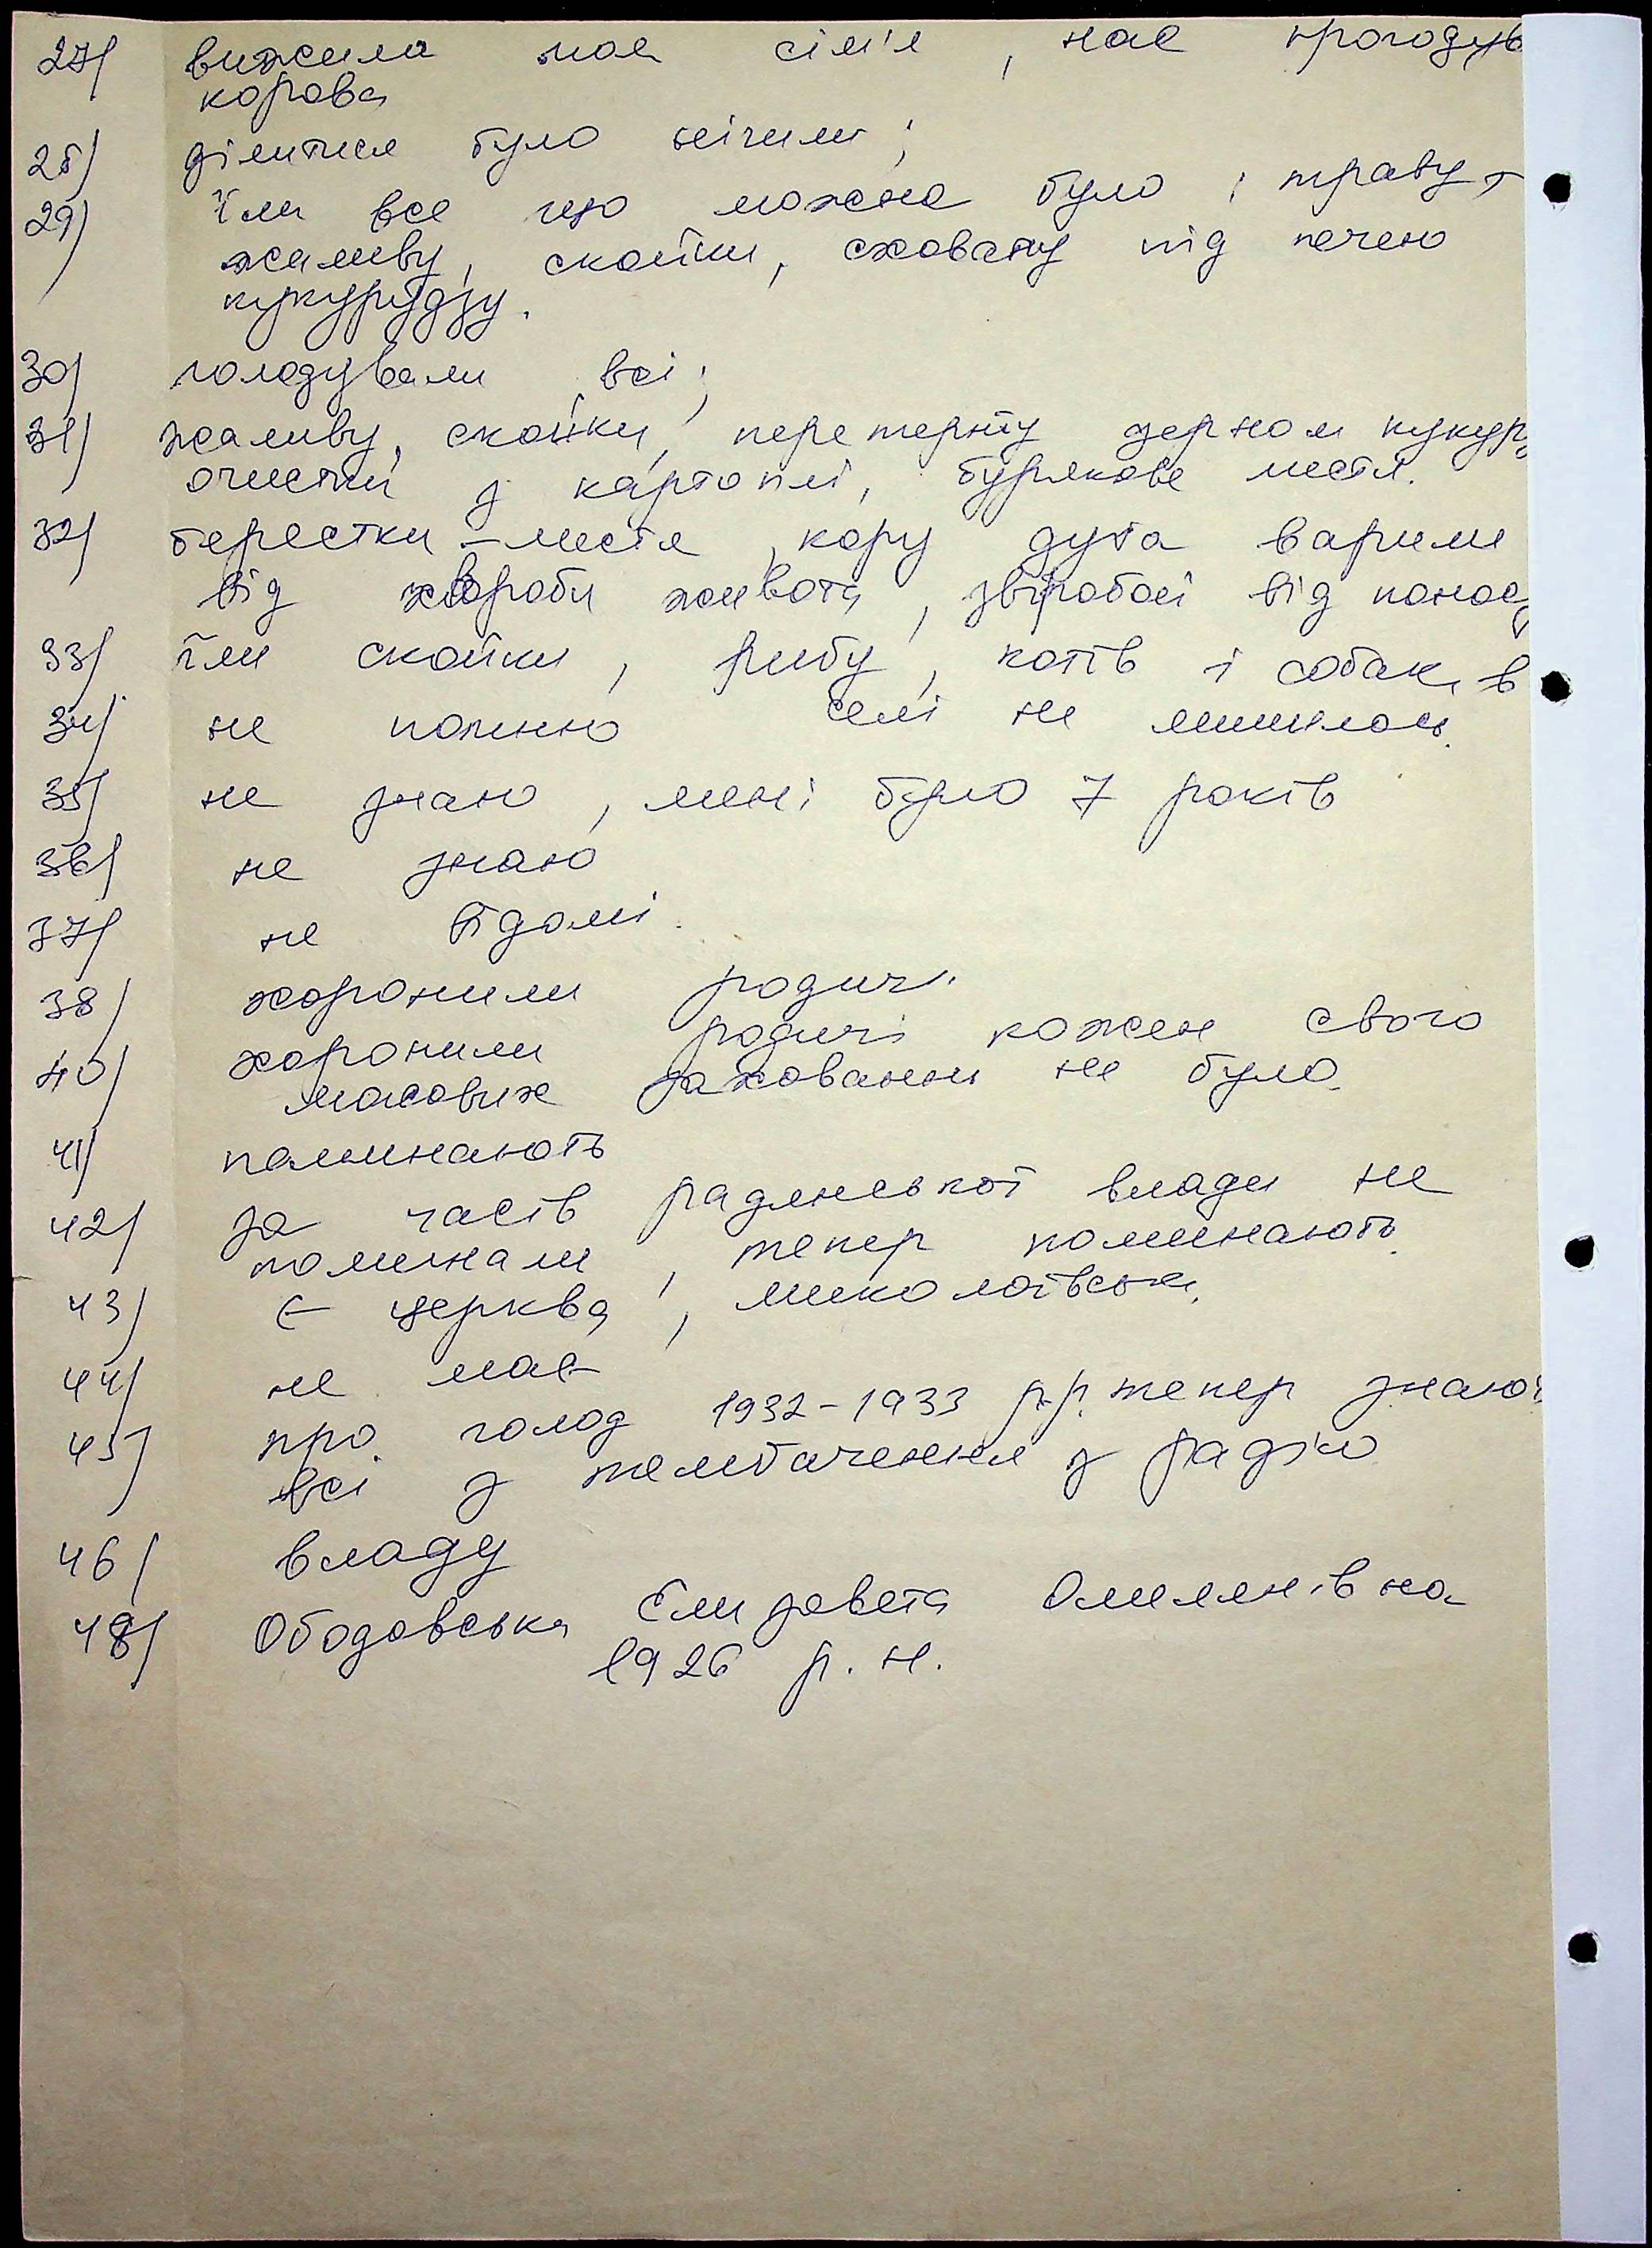 27) вижила моя сім'я, нас прогодув
корова
28) ділитися було нічим;
29) їли все що можна було і траву,
жаливу, скойки, сховану під печею
кукурудзу.
30) голодували всі;
31) жаливу, скойки, перетерту зерном кукур
очистки з картоплі, бурякове листя.
32) берестки - листя, кору дуба варили
від хвороби живота, звіробой від понос
33) їли скойки, рибу, котів і собак в
селі не лишилось.
34) не помню
35) не знаю, мені було 7 років
36) не знаю
37) не відомі.
38) хоронили родичі.
40) хоронили родичі кожен свого
масових захованнь не було.
41) поминають
42) за часів радянської влади не
поминали, тепер поминають.
43) є церква, миколаївська.
44) не має
45) про голод 1932-1933 р.р. тепер знают
всі з телебачення з радіо
46) владу
48) Ободовська Єлизавета Омелянівна
1926 р. н.